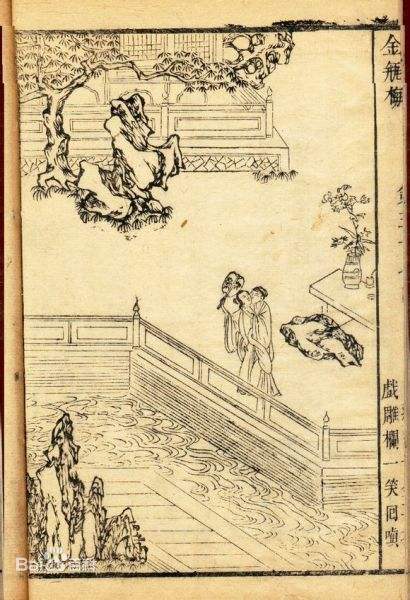 金瓶梅
戲雕欄一笑囘嗔
Bai百科